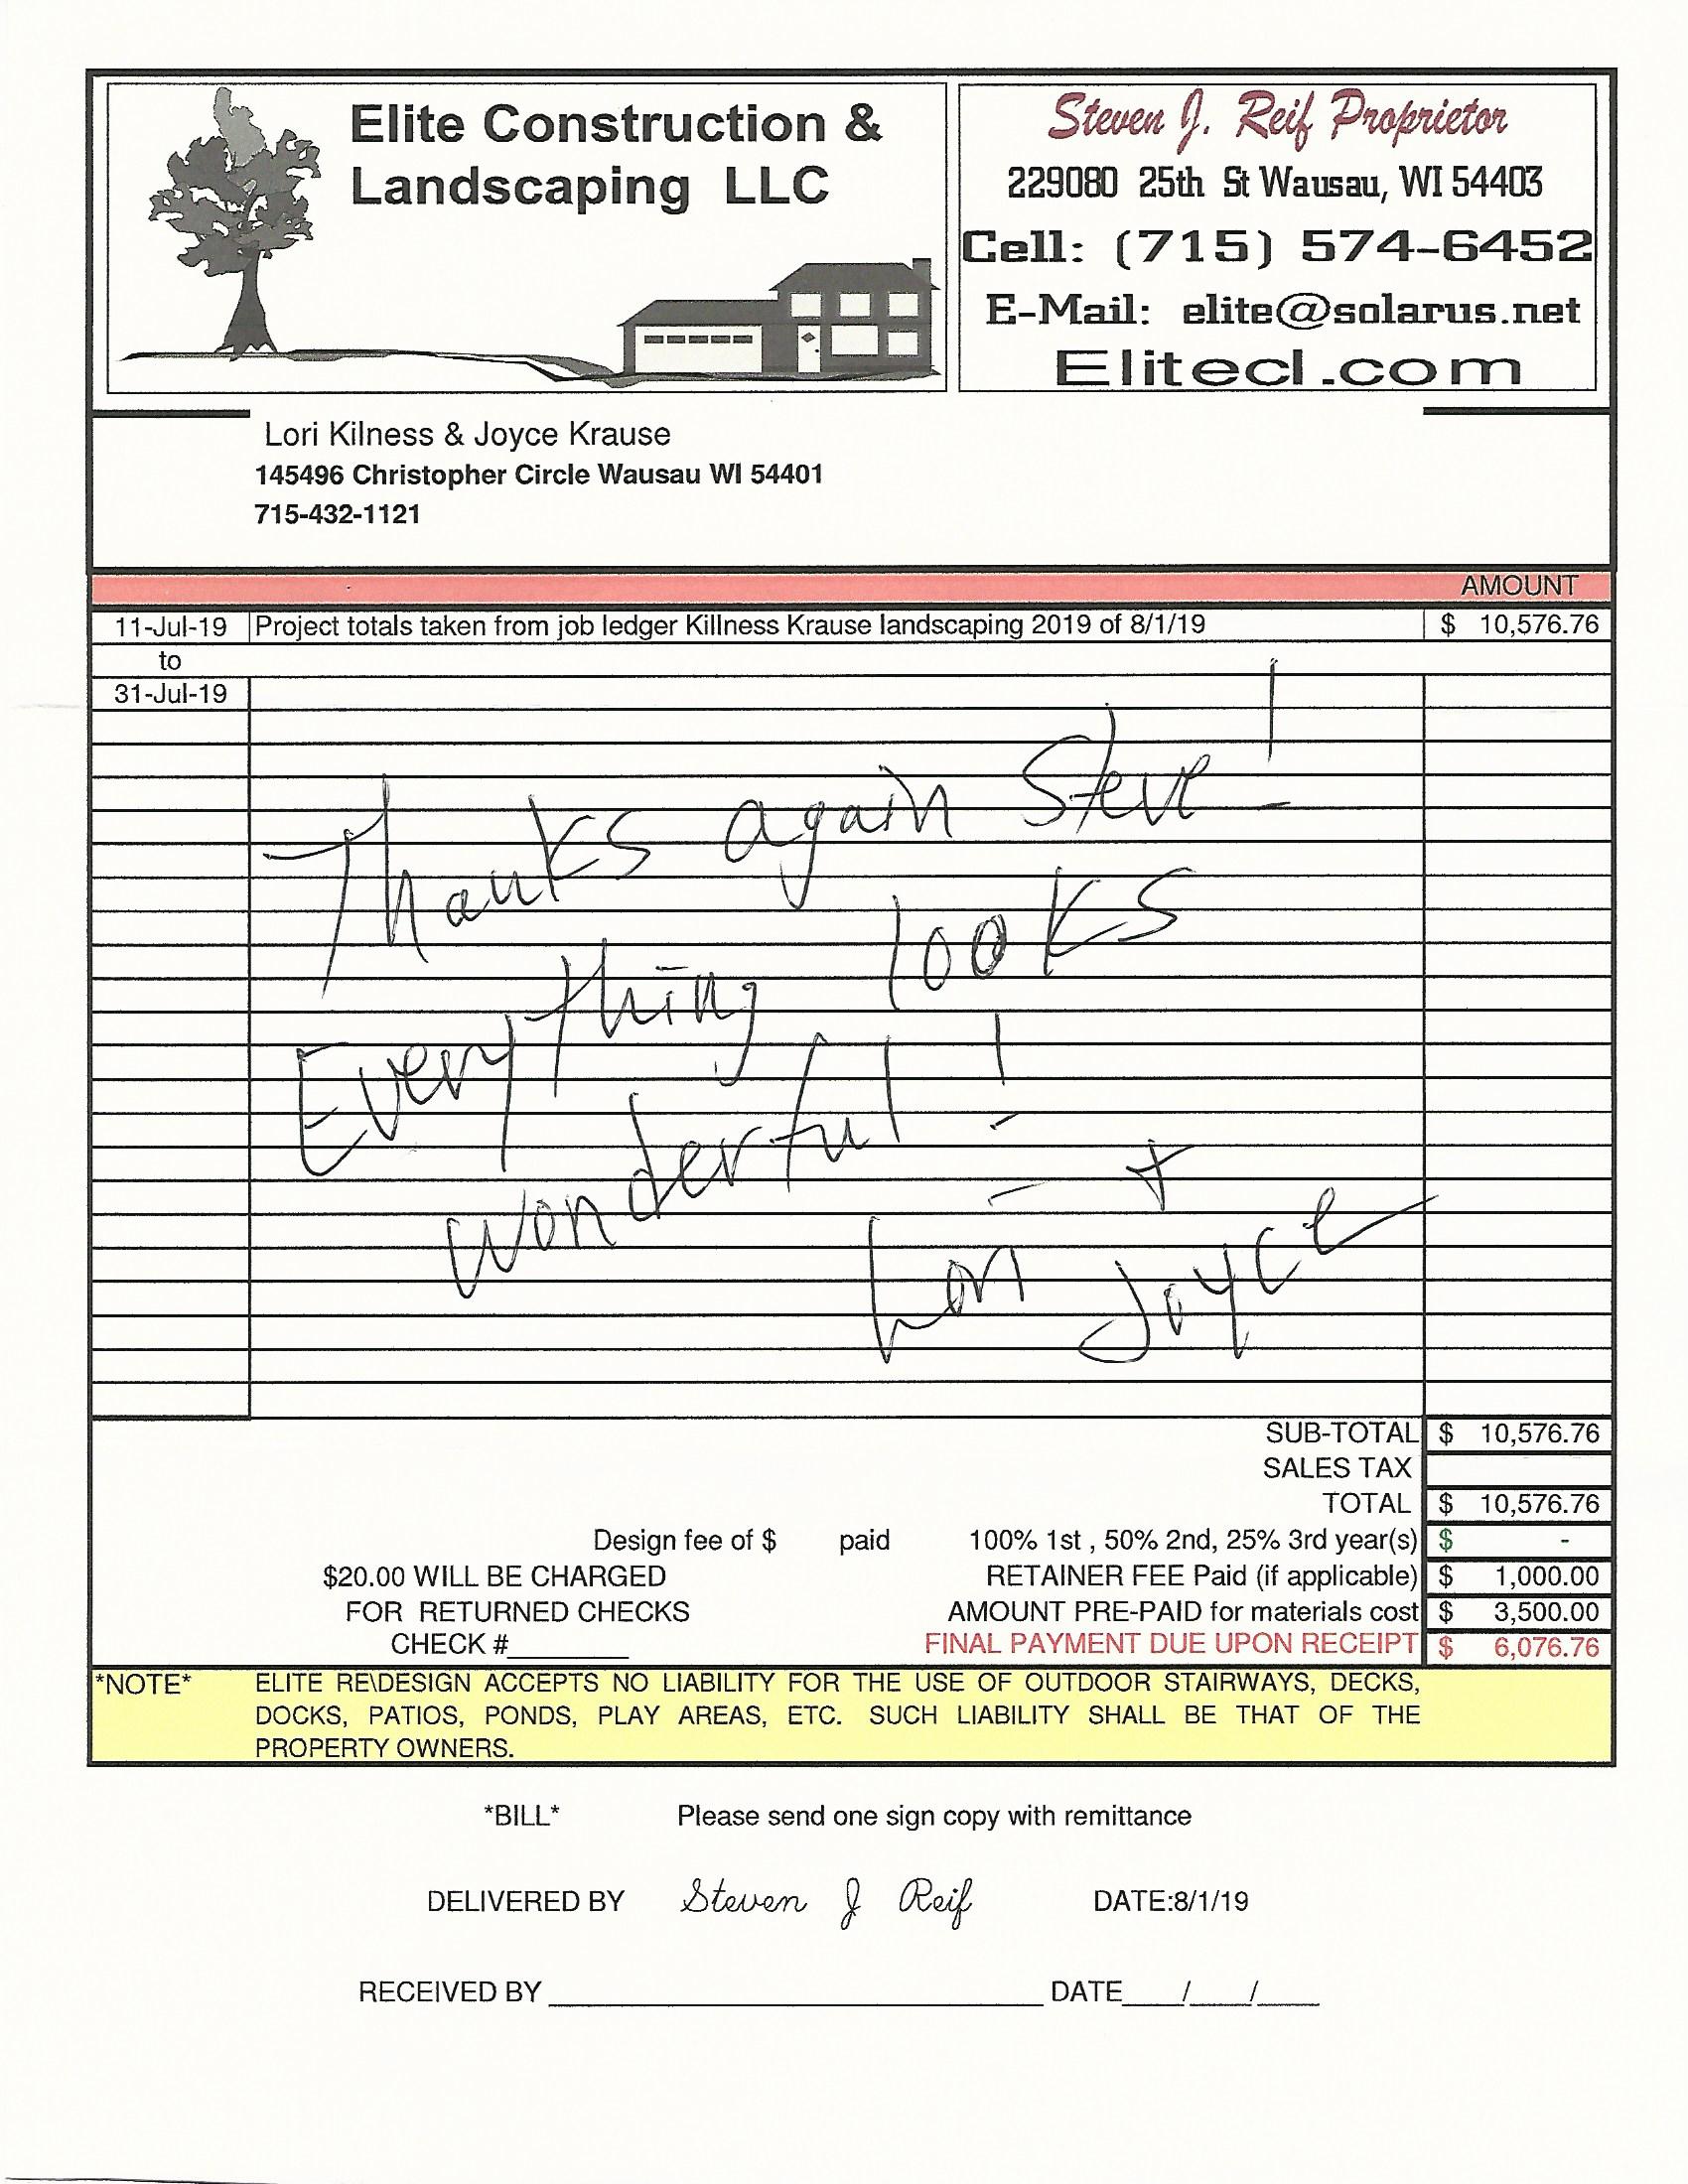 Elite Construction &
Landscaping LLC
Steven J. Reif Proprietor
229080 25th St Wausau, WI 54403
Cell: (715) 574-6452
E-Mail: elite@solarus.net
Elitecl.com
Lori Kilness & Joyce Krause
145496 Christopher Circle Wausau WI 54401
715-432-1121
AMOUNT
11-Jul-19 Project totals taken from job ledger Killness Krause landscaping 2019 of 8/1/19 $ 10,576.76
to
31-Jul-19
Thanks again Steve!
Everything looks
wonderful!
- Lori + Joyce
SUB-TOTAL $ 10,576.76
SALES TAX
TOTAL $ 10,576.76
Design fee of $ paid 100% 1st , 50% 2nd, 25% 3rd year(s) $ -
$20.00 WILL BE CHARGED RETAINER FEE Paid (if applicable) $ 1,000.00
FOR RETURNED CHECKS AMOUNT PRE-PAID for materials cost $ 3,500.00
CHECK #________ FINAL PAYMENT DUE UPON RECEIPT $ 6,076.76
*NOTE* ELITE RE\DESIGN ACCEPTS NO LIABILITY FOR THE USE OF OUTDOOR STAIRWAYS, DECKS,
DOCKS, PATIOS, PONDS, PLAY AREAS, ETC. SUCH LIABILITY SHALL BE THAT OF THE
PROPERTY OWNERS.
*BILL* Please send one sign copy with remittance
DELIVERED BY Steven J Reif DATE:8/1/19
RECEIVED BY ________________ DATE____/____/____